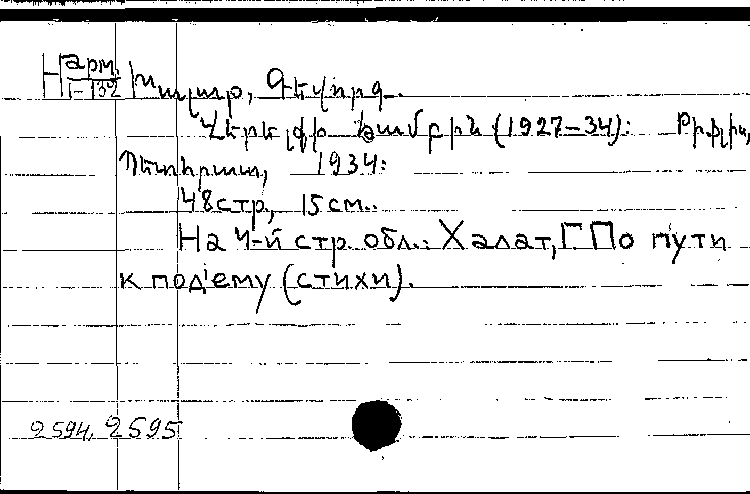 Нарм. Խալաթ, Գևորգ.
Г-132
Վերելքի ճամբին (1927-34): Թիֆլիս,
Պետհրատ, 1934:
48 стр., 15 см..
На 4-й стр. обл.: Халат, Г. По пути
к под'ему (стихи).
2594, 2595